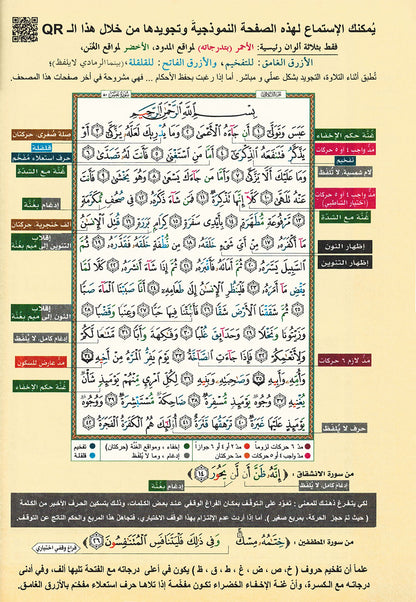 يُمكنك الإستماع لهذه الصفحة النموذجية وتجويدها من خلال هذا الـ QR
فقط بثلاثة ألوان رئيسية: الأحمر (بتدرجاته) لمواقع المدود، الأخضر لمواقع الغُنَن،
الأزرق الغامق: للتفخيم، والأزرق الفاتح: للقلقلة، (بينما الرمادي لا يُلفظ)
نُطبق أثناء التلاوة، التجويد بشكل عملي و مباشر. أما إذا رغبت بحفظ الأحكام ... فهي مشروحة في آخر صفحات هذا المصحف.
بِسْمِ اللَّهِ الرَّحْمَٰنِ الرَّحِيمِ
عَبَسَ وَتَوَلَّىٰ ١ أَن جَآءَهُ ٱلْأَعْمَىٰ ٢ وَمَا يُدْرِيكَ لَعَلَّهُۥ يَزَّكَّىٰٓ ٣ أَوْ
يَذَّكَّرُ فَتَنفَعَهُ ٱلذِّكْرَىٰٓ ٤ أَمَّا مَنِ ٱسْتَغْنَىٰ ٥ فَأَنتَ لَهُۥ تَصَدَّىٰ ٦
وَمَا عَلَيْكَ أَلَّا يَزَّكَّىٰ ٧ وَأَمَّا مَن جَآءَكَ يَسْعَىٰ ٨ وَهُوَ يَخْشَىٰ ٩ فَأَنتَ
عَنْهُ تَلَهَّىٰ ١٠ كَلَّآ إِنَّهَا تَذْكِرَةٌ ١١ فَمَن شَآءَ ذَكَرَهُۥ ١٢ فِى صُحُفٍ مُّكَرَّمَةٍ ١٣
مَّرْفُوعَةٍ مُّطَهَّرَةٍۭ ١٤ بِأَيْدِى سَفَرَةٍ ١٥ كِرَامٍۭ بَرَرَةٍ ١٦ قُتِلَ ٱلْإِنسَٰنُ
مَآ أَكْفَرَهُۥ ١٧ مِنْ أَىِّ شَىْءٍ خَلَقَهُۥ ١٨ مِن نُّطْفَةٍ خَلَقَهُۥ فَقَدَّرَهُۥ ١٩ ثُمَّ
ٱلسَّبِيلَ يَسَّرَهُۥ ٢٠ ثُمَّ أَمَاتَهُۥ فَأَقْبَرَهُۥ ٢١ ثُمَّ إِذَا شَآءَ أَنشَرَهُۥ ٢٢ كَلَّا لَمَّا
يَقْضِ مَآ أَمَرَهُۥ ٢٣ فَلْيَنظُرِ ٱلْإِنسَٰنُ إِلَىٰ طَعَامِهِۦٓ ٢٤ أَنَّا صَبَبْنَا ٱلْمَآءَ صَبًّا ٢٥
ثُمَّ شَقَقْنَا ٱلْأَرْضَ شَقًّا ٢٦ فَأَنۢبَتْنَا فِيهَا حَبًّا ٢٧ وَعِنَبًا وَقَضْبًا ٢٨
وَزَيْتُونًا وَنَخْلًا ٢٩ وَحَدَآئِقَ غُلْبًا ٣٠ وَفَٰكِهَةً وَأَبًّا ٣١ مَّتَٰعًا لَّكُمْ
وَلِأَنْعَٰمِكُمْ ٣٢ فَإِذَا جَآءَتِ ٱلصَّآخَّةُ ٣٣ يَوْمَ يَفِرُّ ٱلْمَرْءُ مِنْ أَخِيهِ ٣٤
وَأُمِّهِۦ وَأَبِيهِ ٣٥ وَصَٰحِبَتِهِۦ وَبَنِيهِ ٣٦ لِكُلِّ ٱمْرِئٍ مِّنْهُمْ يَوْمَئِذٍ شَأْنٌ
يُغْنِيهِ ٣٧ وُجُوهٌ يَوْمَئِذٍ مُّسْفِرَةٌ ٣٨ ضَاحِكَةٌ مُّسْتَبْشِرَةٌ ٣٩ وَوُجُوهٌ
يَوْمَئِذٍ عَلَيْهَا غَبَرَةٌ ٤٠ تَرْهَقُهَا قَتَرَةٌ ٤١ أُو۟لَٰٓئِكَ هُمُ ٱلْكَفَرَةُ ٱلْفَجَرَةُ ٤٢
غُنّة حكم الإخفاء
مدّ واجب ٤ أو ٥ حركات
تفخيم
لام شمسية، لا تُلفَظ
مدّ واجب ٤ أو ٥ حركات
غُنّة مع الشدّة
إظهار النون
إظهار التنوين
مدّ لازم ٦ حركات
حرف لا يُلفَظ
صلة صُغرى، حركتان
قلقلة
حرف استعلاء مُفخَّم
غُنّة مع الشدّة
إدغام بغُنّة
ألف خنجرية، حركتان
إقلاب
التنوين إلى ميم بغُنّة
إقلاب
النون إلى ميم بغُنّة
إدغام كامل، لا يُلفَظ
مدّ عارض للسكون
غُنّة حكم الإخفاء
مدّ ٦ حركات لزوماً
مدّ ٢ أو ٤ أو ٦ جوازاً
إخفاء ، ومواقع الغُنّة (حركتان)
تفخيم
مدّ واجب ٤ أو ٥ حركات
مدّ حركتان
إدغام ، وما لا يُلفَظ
قلقلة
من سورة الانشقاق : إِنَّهُۥ ظَنَّ أَن لَّن يَحُورَ ١٤
إدغام كامل، لا يُلفظ
إدغام بغُنّة
لكي يتفرغ ذهنك للمعنى : تعوّد على التوقف بمكان الفراغ الوقفي عند بعض الكلمات، وذلك بتسكين الحرف الأخير من الكلمة
( حيث تم حجز الحركة، بمربع صغير ). أما إذا أردت عدم الالتزام بهذا الوقف الاختياري، فتجاهل هذا المربع والحكم الناتج عن التوقف.
من سورة المطففين : خِتَٰمُهُۥ مِسْكٌ وَفِى ذَٰلِكَ فَلْيَتَنَافَسِ ٱلْمُتَنَٰفِسُونَ ٢٦
فراغ وقفي اختياري
علماً أن تفخيم حروف ( خ ، ص ، ض ، غ ، ط ، ق ، ظ ) يكون في أعلى درجاته مع الفتحة تليها ألف، وفي أدنى
درجاته مع الكسرة، وأنّ غنّة الإخفاء الخضراء تكون مفخّمة إذا تلاها حرف استعلاء مفخم بالأزرق الغامق.